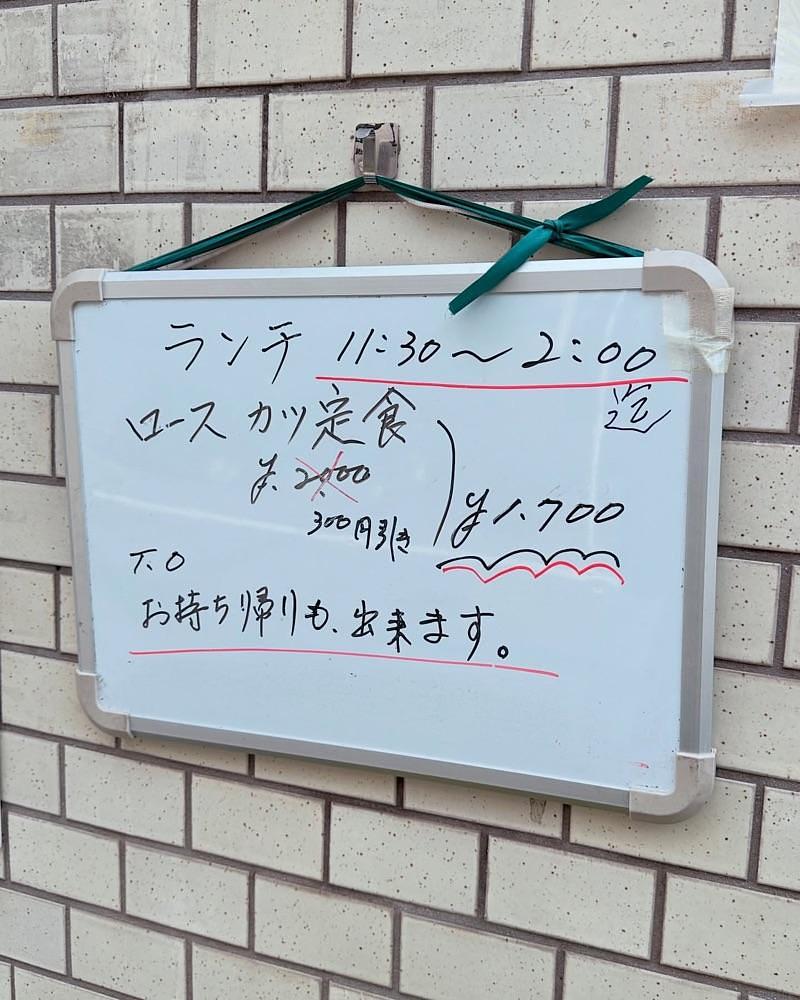 ランチ 11:30～2:00
迄
ロースカツ定食
¥.2,000
300円引き
¥1.700
T.O
お持ち帰りも、出来ます。